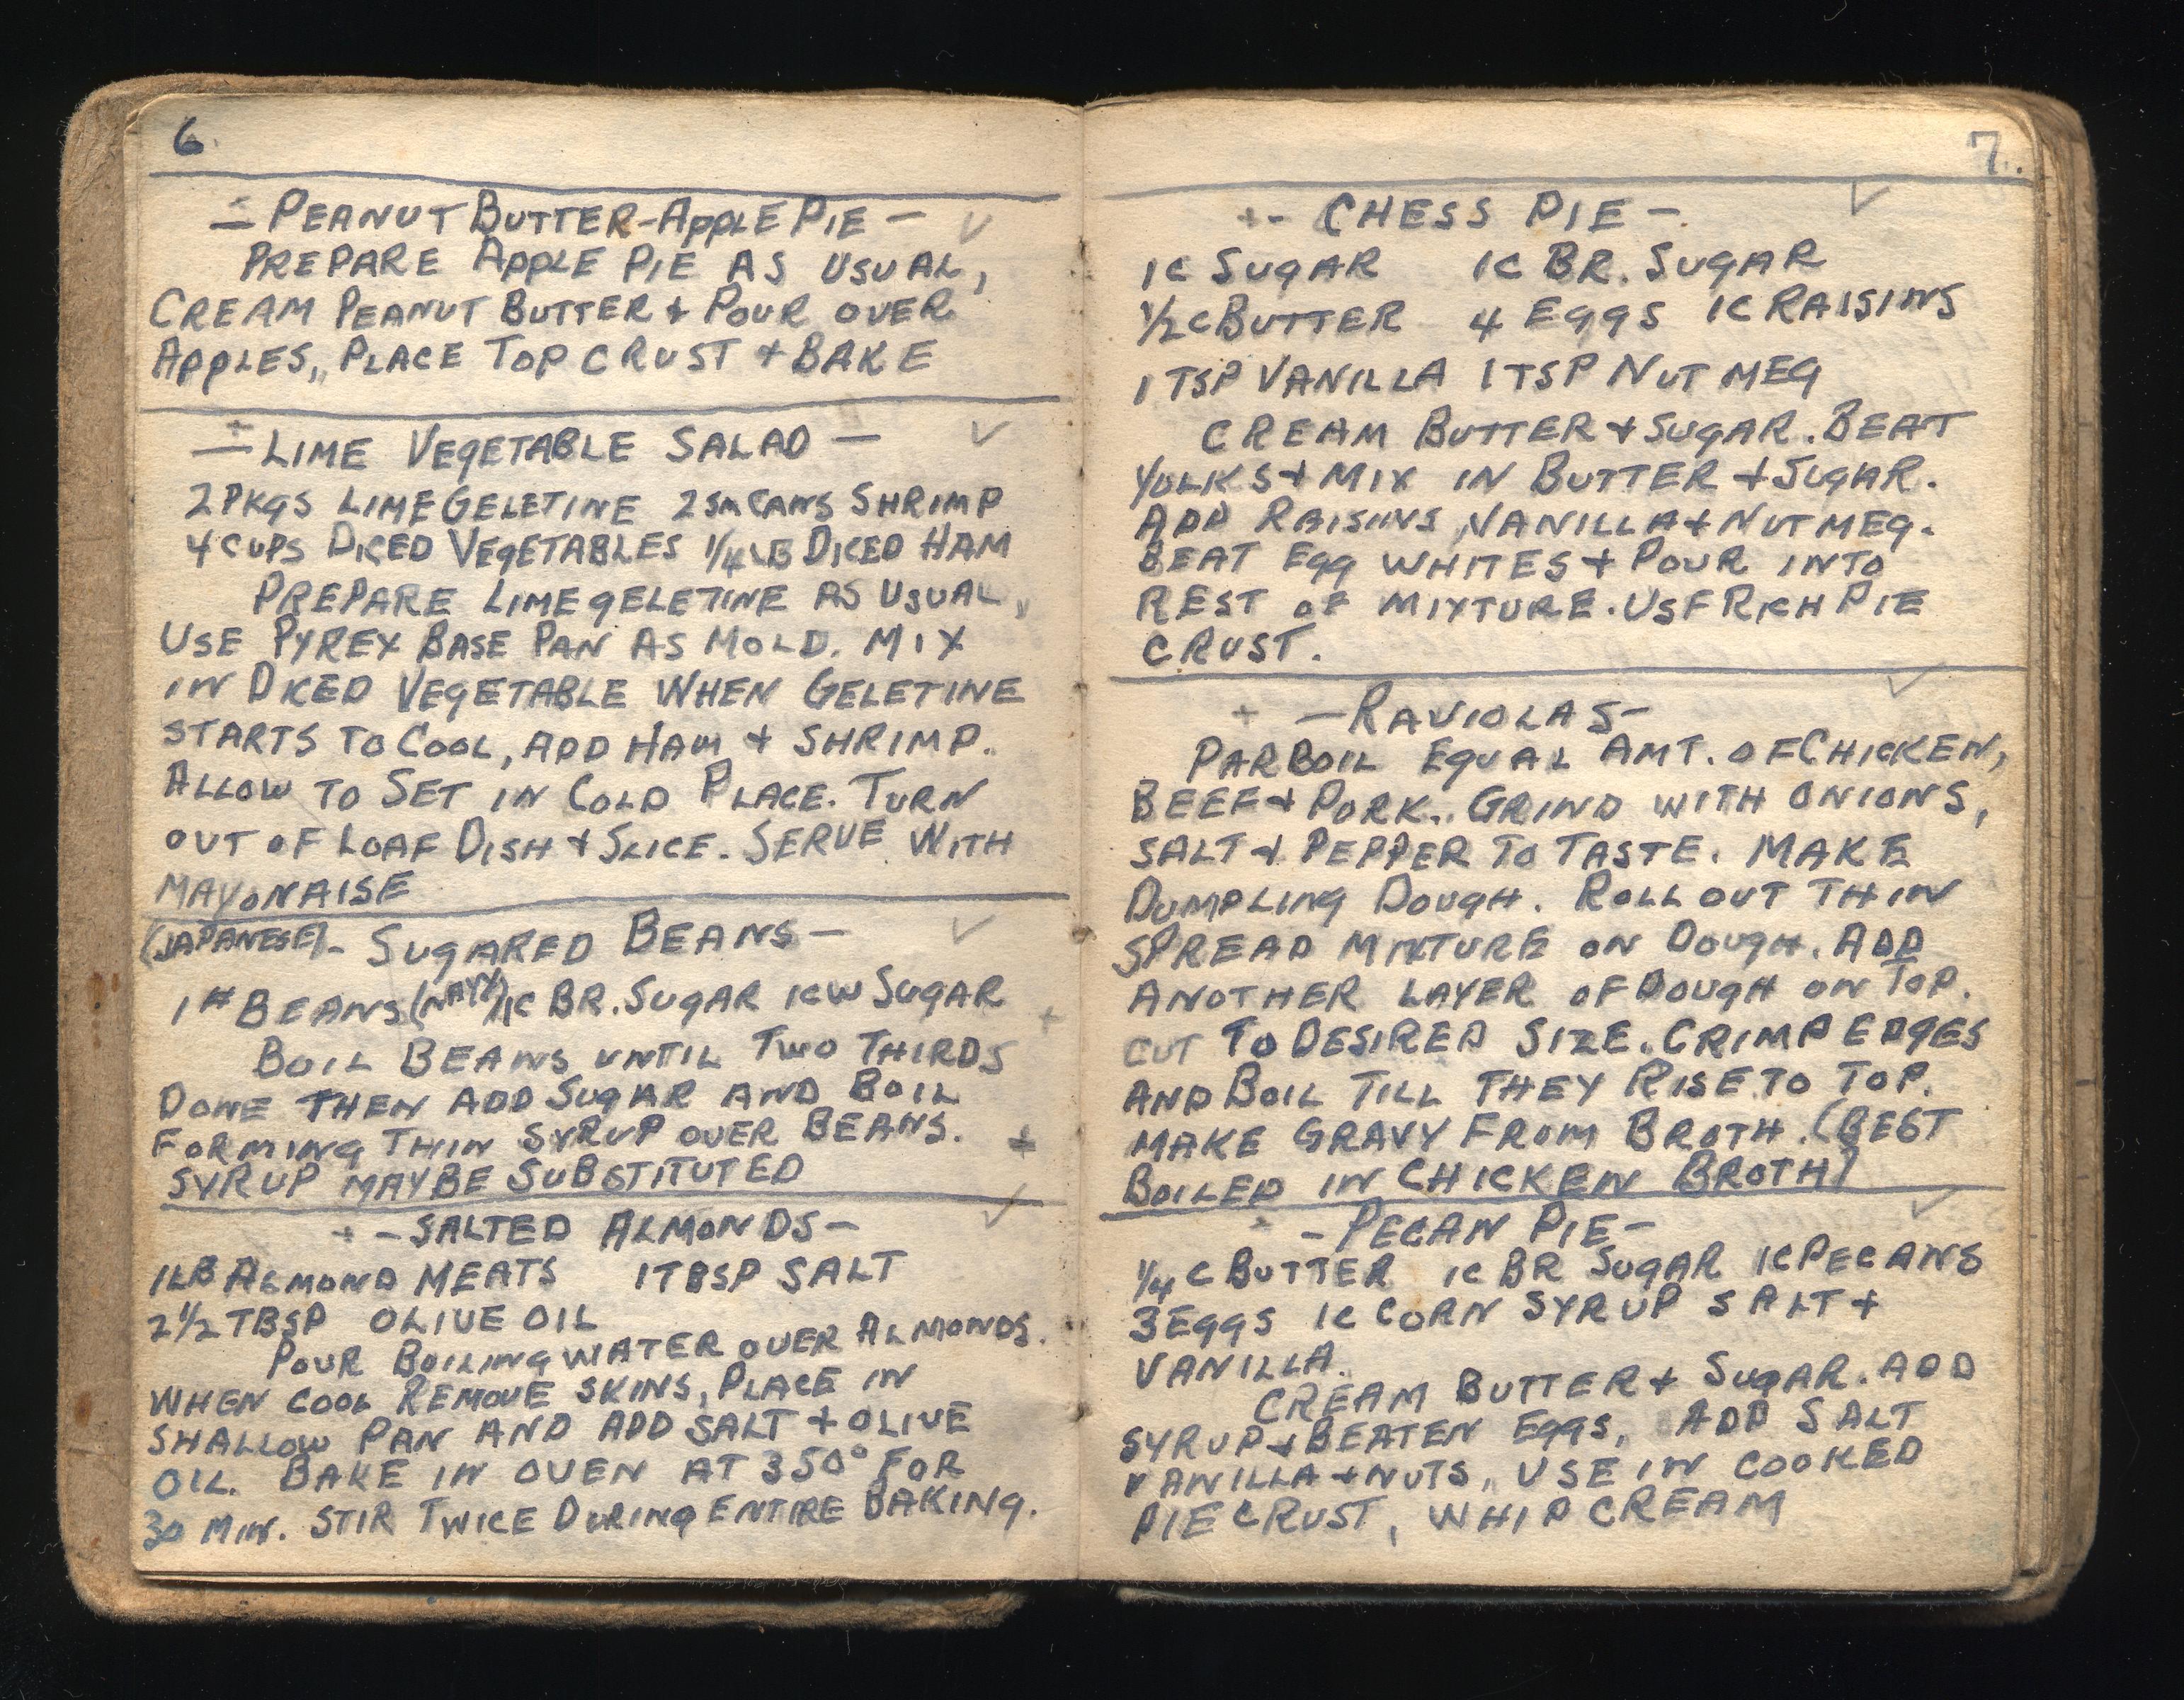 6.
- PEANUT BUTTER-APPLE PIE -
PREPARE APPLE PIE AS USUAL,
CREAM PEANUT BUTTER + POUR OVER
APPLES, PLACE TOP CRUST + BAKE
- LIME VEGETABLE SALAD -
2 PKGS LIME GELETINE 2 SM CANS SHRIMP
4 CUPS DICED VEGETABLES 1/4 LB DICED HAM
PREPARE LIME GELETINE AS USUAL,
USE PYREX BASE PAN AS MOLD. MIX
IN DICED VEGETABLE WHEN GELETINE
STARTS TO COOL, ADD HAM + SHRIMP.
ALLOW TO SET IN COLD PLACE. TURN
OUT OF LOAF DISH + SLICE. SERVE WITH
MAYONAISE
(JAPANESE) - SUGARED BEANS -
1# BEANS (NAVY) 1C BR. SUGAR 1C W SUGAR
BOIL BEANS UNTIL TWO THIRDS
DONE THEN ADD SUGAR AND BOIL
FORMING THIN SYRUP OVER BEANS. +
SYRUP MAYBE SUBSTITUTED
+ - SALTED ALMONDS -
1LB ALMOND MEATS 1 TBSP SALT
2 1/2 TBSP OLIVE OIL
POUR BOILING WATER OVER ALMONDS.
WHEN COOL REMOVE SKINS, PLACE IN
SHALLOW PAN AND ADD SALT + OLIVE
OIL. BAKE IN OVEN AT 350° FOR
30 MIN. STIR TWICE DURING ENTIRE BAKING.
7.
+ - CHESS PIE -
1C SUGAR 1C BR. SUGAR
1/2 C BUTTER 4 EGGS 1C RAISINS
1 TSP VANILLA 1 TSP NUTMEG
CREAM BUTTER + SUGAR. BEAT
YOLKS + MIX IN BUTTER + SUGAR.
ADD RAISINS, VANILLA + NUTMEG.
BEAT EGG WHITES + POUR INTO
REST OF MIXTURE. USE RICH PIE
CRUST.
+ - RAVIOLAS -
PARBOIL EQUAL AMT. OF CHICKEN,
BEEF + PORK. GRIND WITH ONIONS,
SALT + PEPPER TO TASTE. MAKE
DUMPLING DOUGH. ROLL OUT THIN
SPREAD MIXTURE ON DOUGH. ADD
ANOTHER LAYER OF DOUGH ON TOP.
CUT TO DESIRED SIZE. CRIMP EDGES
AND BOIL TILL THEY RISE TO TOP.
MAKE GRAVY FROM BROTH. (BEST
BOILED IN CHICKEN BROTH)
- PECAN PIE -
1/4 C BUTTER 1C BR SUGAR 1C PECANS
3 EGGS 1C CORN SYRUP SALT +
VANILLA.
CREAM BUTTER + SUGAR. ADD
SYRUP + BEATEN EGGS, ADD SALT
VANILLA + NUTS, USE IN COOKED
PIE CRUST, WHIP CREAM